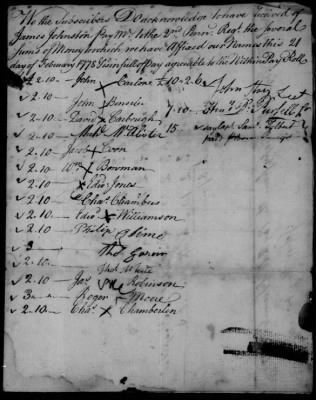 We the Subscribers Do acknowledge to have received of
James Johnston Pay Mr to the 2nd Penn Regt the several
Sums of Money for which we have Affixed our Names this 21
day of February 1778 in full of Pay agreeable to the Within Pay Roll
2.10 John X £10.2.6 John Lieut
2.10 John
2.10 David X 7.10
2.10 McAlister 15
2.10 Jacob X Coon
2.10 Wm X Bowman
2.10 X Edwd Jones
2.10 Chas Chambers
2.10 Edwd X Williamson
2.10 Philip
3 Thos
2.10 Thos White
2.10 Jas Robinson
3 Roger Moore
2.10 Chas X Chamberlin